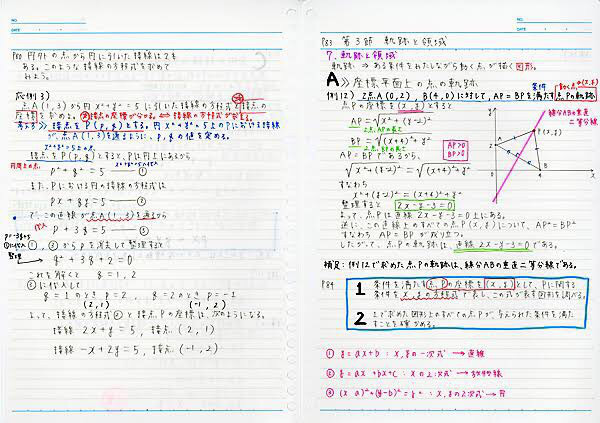 NO.
DATE
P80 円外の点から円に引いた接線は2本
ある。このような接線の方程式を求めて
みよう。
応例3)
点A(1,3)から円x²+y²=5に引いた接線の方程式と接点の
座標を求めよ。
接点の座標が分かる ⇔ 接線の方程式が分かる。
考え方≫ 接点をP(p,q)とする。円x²+y²=5上のPにおける接線
が、点A(1,3)を通るように、p,qの値を定める。
接点をP(p,q)とすると、Pは円上にあるから、
p²+q²=5 ①
また、Pにおける円の接線の方程式は
px+qy=5 ②
で、この直線が点A(1,3)を通るから
代入
p+3q=5 ③
①,③からpを消去して整理すると
整理
q²-3q+2=0
これを解くと q=1,2
③に代入して
q=1のとき p=2, q=2のとき p=-1
(2,1) (-1,2)
よって、接線の方程式②と接点Pの座標は、次のようになる。
接線 2x+y=5, 接点(2,1)
接線 -x+2y=5, 接点(-1,2)
NO.
DATE
P83 第3節 軌跡と領域
7. 軌跡
軌跡 ⇒ ある条件をみたしながら動く点が描く図形。
A≫座標平面上の点の軌跡
条件 動く点(x,y)
例12) 2点A(0,2), B(4,0)に対して、AP=BPを満たす点Pの軌跡
点Pの座標を(x,y)とすると
AP=√x²+(y-2)²
2点A,Pの長さ
BP=√(x-4)²+y²
2点B,Pの長さ
AP>0
BP>0
AP=BPであるから、
√x²+(y-2)²=√(x-4)²+y²
すなわち
x²+(y-2)²=(x-4)²+y²
整理すると 2x-y-3=0
よって、点Pは直線2x-y-3=0上にある。
逆に、この直線上のすべての点P(x,y)について、AP²=BP²
すなわち AP=BPが成り立つ。
したがって、点Pの軌跡は、直線2x-y-3=0である。
線分ABの垂直
二等分線
P(x,y)
補足:例12で求めた点Pの軌跡は、線分ABの垂直二等分線である。
P84
1 条件を満たす点Pの座標を(x,y)として、Pに関する
条件をx,yの方程式で表し、この式が表す図形を調べる。
2 1で求めた図形上のすべての点Pが、与えられた条件を満た
すことを確かめる。
① y=ax+b : x,yの一次式 → 直線
② y=ax²+bx+c : xの2次式 → 放物線
③ (x-a)²+(y-b)²=r² : x,yの2次式 → 円